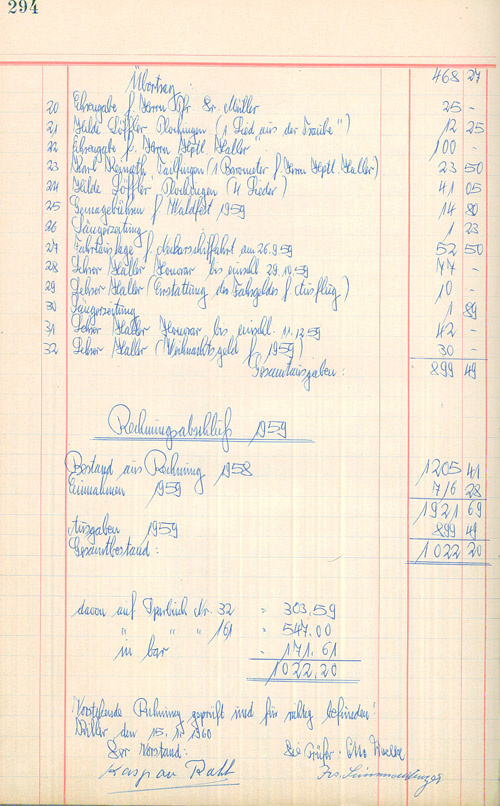 294
Übertrag: 468 27
20 Ehrengabe f. Herrn Dr. Müller 25 -
21 Hilde Löffler Plochingen (1 Lied "aus der Traube") 12 25
22 Ehrengabe f. Herrn Hptl. Haller 100 -
23 Karl Tailfingen (1 Barometer f. Herrn Hptl. Haller) 23 50
24 Hilde Löffler, Plochingen (4 Lieder) 41 05
25 Gemagebühren f. Waldfest 1959 14 80
26 Sängerzeitung 1 23
27 Fahrtauslage f. Neckarschiffahrt am 26.9.59 52 50
28 Lehrer Haller Honorar bis einschl. 29.10.59 77 -
29 Lehrer Haller (Erstattung des Fahrgeldes f. Ausflug) 10 -
30 Sängerzeitung 1 89
31 Lehrer Haller Honorar bis einschl. 11.12.59 42 -
32 Lehrer Haller (Weihnachtsgeld f. 1959) 30 -
Gesamtausgaben: 899 49
Rechnungsabschluß 1959
Bestand aus Rechnung 1958 1205 41
Einnahmen 1959 716 28
1921 69
Ausgaben 1959 899 49
Gesamtbestand: 1022 20
davon auf Sparbuch Nr. 32 = 303,59
" " " 161 = 547.00
in bar = 171.61
1022,20
Vorstehende Rechnung geprüft und für richtig befunden!
den 15. 1. 1960
Der Vorstand: Die Prüfer: Otto
Kaspar Rall